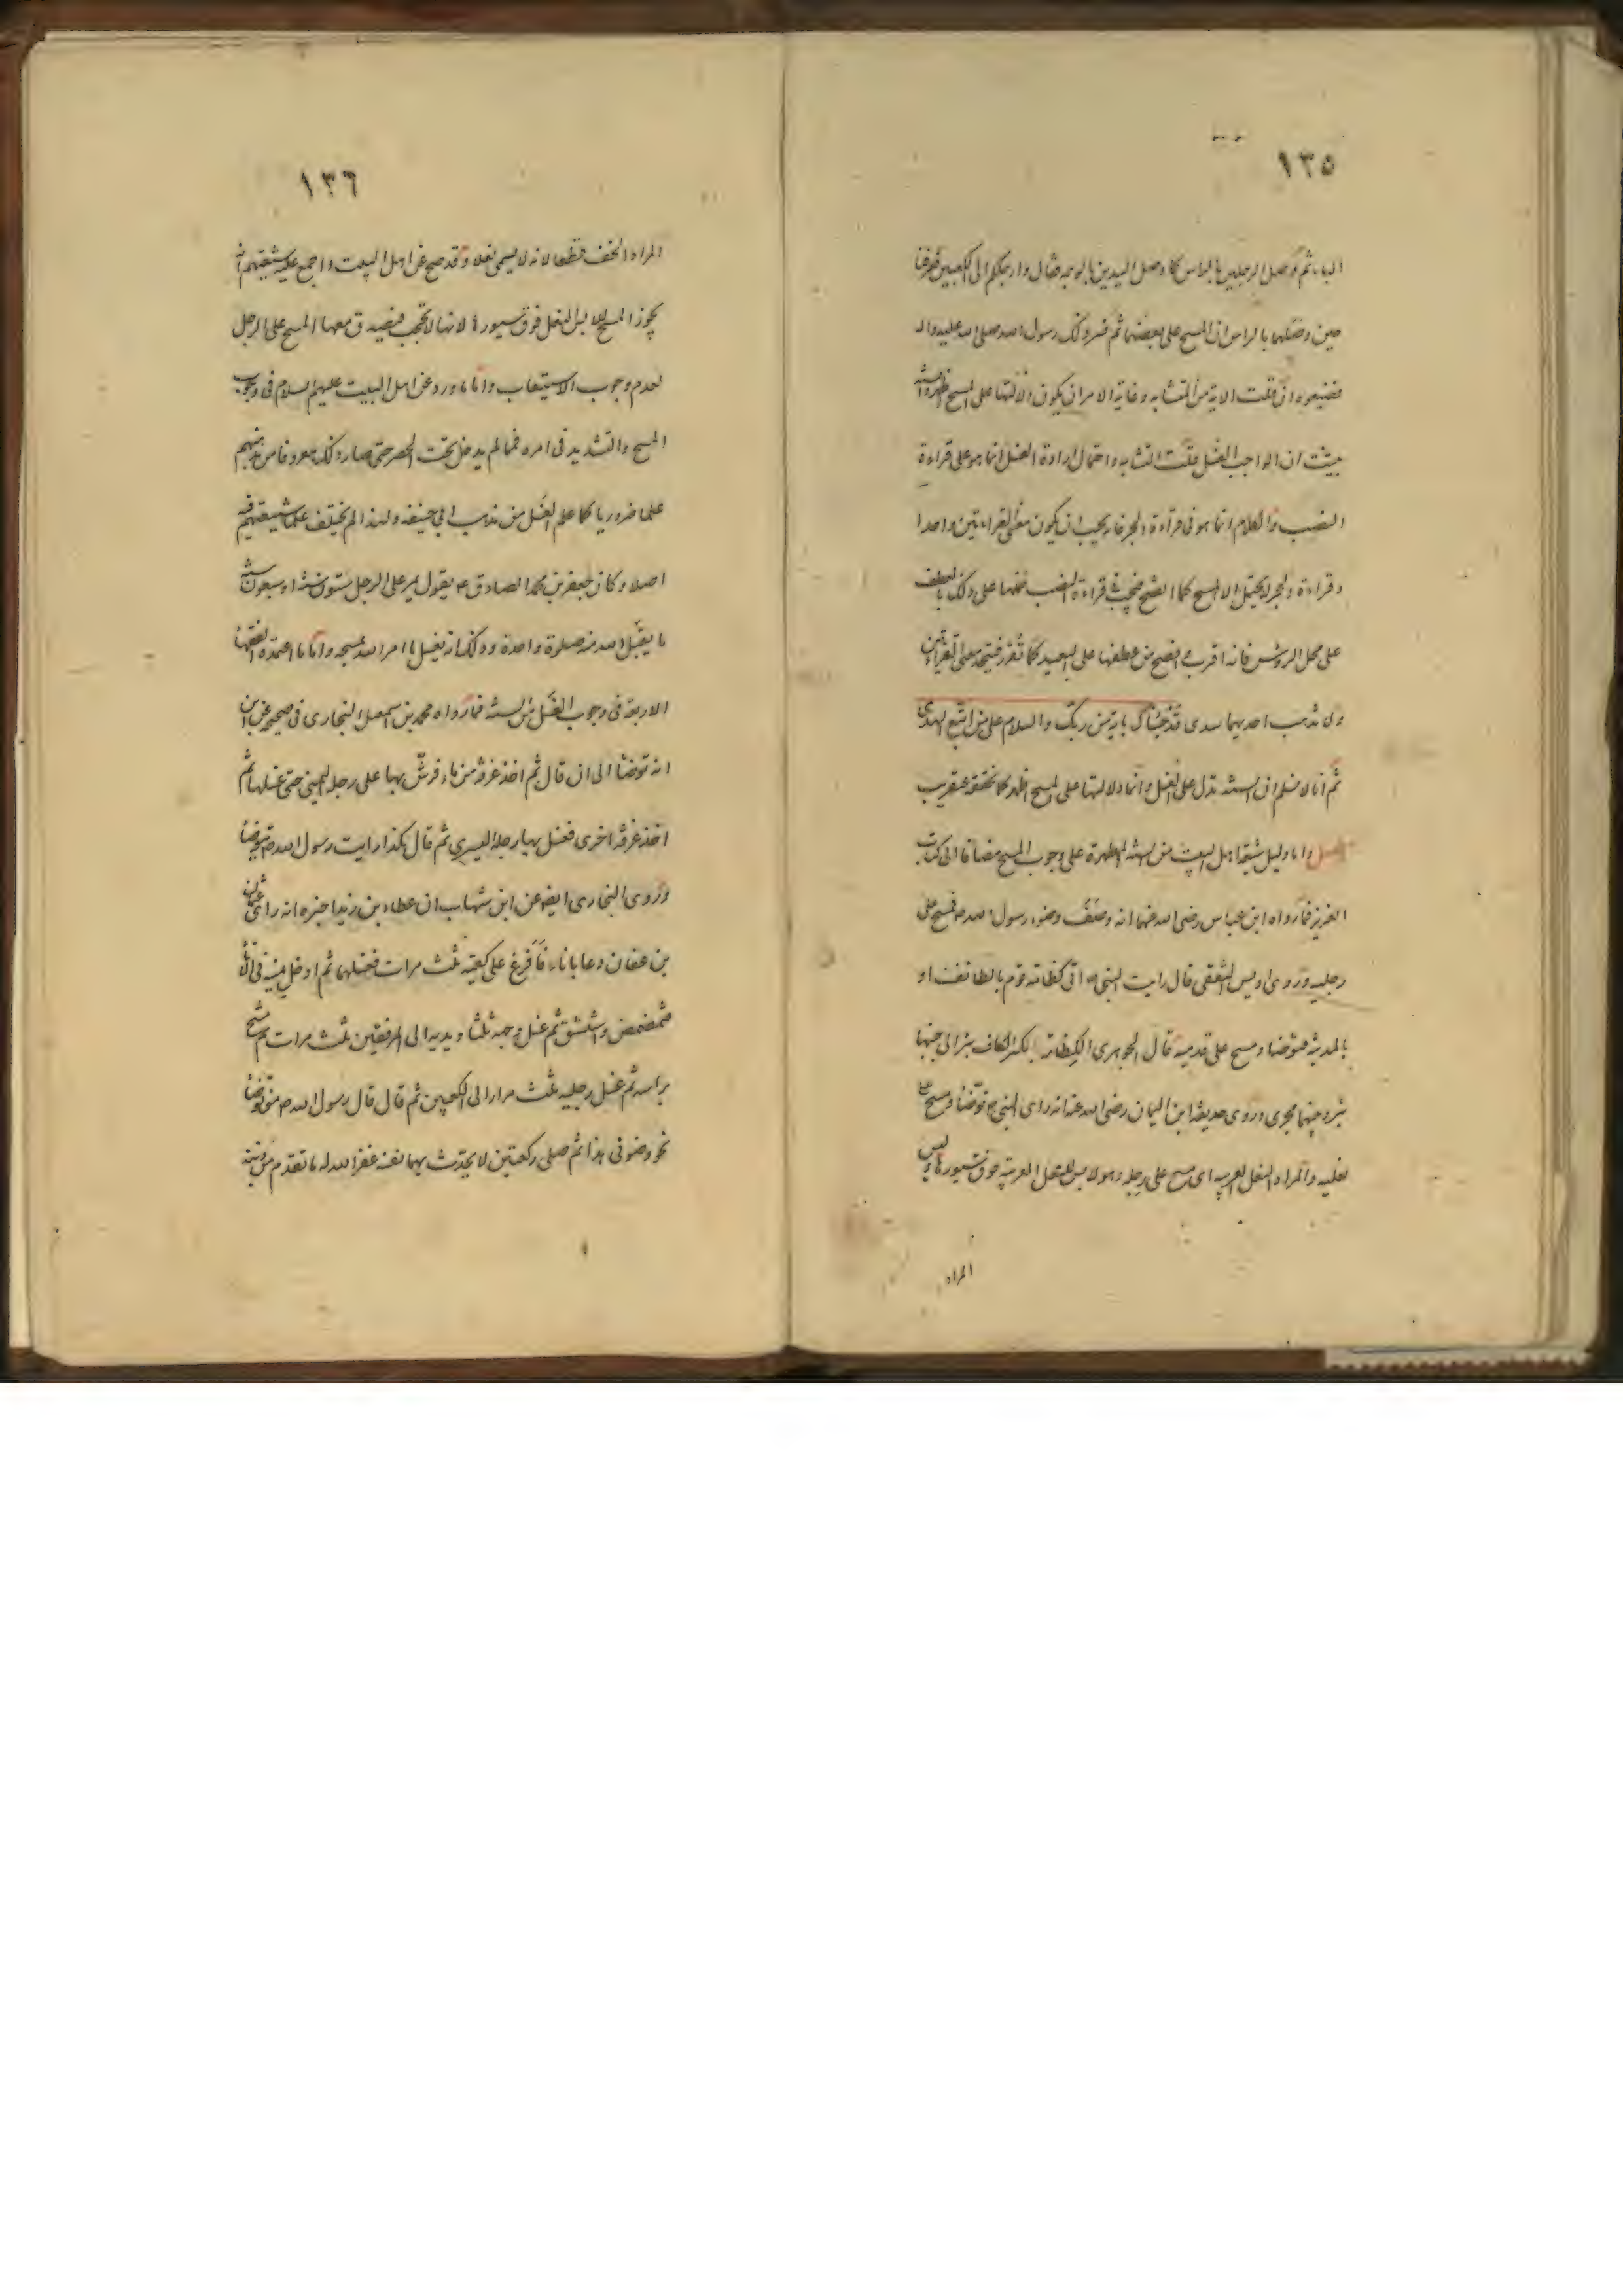 ١٣٥
الباء ثم وصل الرجلين بالراس كما وصل اليدين بالوجه فقال وارجلكم الى الكعبين فعرفنا
حين وصلهما بالراس ان المسح على بعضها ثم فسر ذلك رسول الله صلى الله عليه واله
فضيعوه ان قلت الاية من المتشابه وغاية الامر ان يكون دلالتها على المسح اظهر والسنة
بينت ان الواجب الغسل قلت التشابه واحتمال ارادة الغسل انما هو على قراءة
النصب والكلام انما هو في قراءة الجر فانه يجب ان يكون معنى القراءتين واحدا
وقراءة الجر لا يحتمل الا المسح كما اتضح فيجب في قراءة النصب حملها على ذلك بالعطف
على محل الرؤس فانه اقرب وافصح من عطفها على البعيد كما تقرر فيتحد معنى القراءتين
ولا يذهب احديهما سدى قد جئناك باية من ربك والسلام على من اتبع الهدى
ثم انا لا نسلم ان السنة تدل على الغسل وانما دلالتها على المسح اظهر كما نحققه عنقريب
واما دليل شيعة اهل البيت من السنة المطهرة على وجوب المسح مضافا الى كتاب
العزيز فما رواه ابن عباس رضى الله عنهما انه وصف وضوء رسول الله ص فمسح على
رجليه وروى اوس الثقفى قال رايت النبى ص اتى كظامة قوم بالطائف او
بالمدينة فتوضا ومسح على قدميه قال الجوهرى الكظامة بكسر الكاف بئر الى جنبها
بئر وبينهما مجرى وروى حذيفة ابن اليمان رضى الله عنه انه راى النبى ص توضا ومسح على
نعليه والمراد النعل العربية اى مسح على رجله وهو لابس للنعل العربية فوق سيورها وليس
المراد
١٣٦
المراد الخف قطعا لانه لا يسمى نعلا وقد صح عن اهل البيت واجمع عليه شيعتهم انه
يجوز المسح للابس النعل فوق سيورها لانها لا تحجب فيصدق معها المسح على الرجل
لعدم وجوب الاستيعاب واما ما ورد عن اهل البيت عليهم السلام فى وجوب
المسح والتشديد فى امره فمما لم يدخل تحت الحصر حتى صار ذلك معروفا من مذهبهم
علما ضروريا كما علم الغسل من مذهب ابى حنيفة ولهذا لم يختلف علماء شيعتهم فيه
اصلا وكان جعفر بن محمد الصادق ع يقول يمر على الرجل ستون سنة او سبعون سنة
ما يقبل الله منه صلوة واحدة وذلك انه يغسل ما امر الله بمسحه واما ما اعتمده الفقهاء
الاربعة فى وجوب الغسل من السنة فما رواه محمد بن اسمعيل البخارى فى صحيحه عن ابن
انه توضا الى ان قال ثم اخذ غرفة من ماء فرش بها على رجله اليمنى حتى غسلها ثم
اخذ غرفة اخرى فغسل بها رجله اليسرى ثم قال هكذا رايت رسول الله ص يتوضا
وروى البخارى ايضا عن ابن شهاب ان عطاء بن زيد اخبره انه راى عثمان
بن عفان دعا باناء فافرغ على كفيه ثلث مرات فغسلهما ثم ادخل يمينه فى الاناء
فتمضمض واستنشق ثم غسل وجهه ثلثا ويديه الى المرفقين ثلث مرات ثم مسح
براسه ثم غسل رجليه ثلث مرارا الى الكعبين ثم قال قال رسول الله ص من توضا
نحو وضوئى هذا ثم صلى ركعتين لا يحدث بهما نفسه غفر الله له ما تقدم من ذنبه